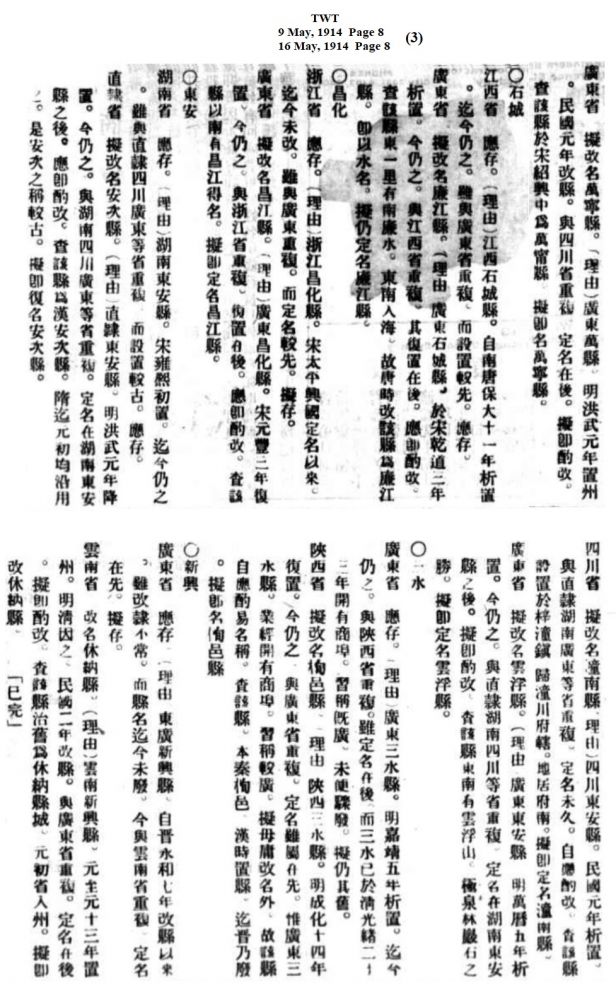 TWT
9 May, 1914 Page 8
16 May, 1914 Page 8
(3)
廣東省 擬改名萬寧縣。(理由)廣東萬縣、明洪武元年置州
。民國元年改縣。與四川省重複、定名在後。擬卽酌改。
查該縣於宋紹興中爲萬甯縣、擬卽名萬寧縣。
〇石城
江西省 應存。(理由)江西石城縣。自南唐保大十一年析置
。迄今仍之。雖與廣東省重複、而設置較先。應存。
廣東省 擬改名廉江縣。(理由 廣東石城縣。於宋乾道三年
析置 今仍之。與江西省重複。其復置在後。應卽酌改。
查該縣東一里有南廉水。東南入海、故唐時改該縣爲廉江
縣。卽以水名。擬仍定名廉江縣。
〇昌化
浙江省 應存。(理由)浙江昌化縣。宋太平興國定名以來。
迄今未改。雖與廣東重複。而定名較先。擬存。
廣東省 擬改名昌江縣。(理由)廣東昌化縣。宋元豐三年復
置、今仍之。與浙江省重複、復置在後。應卽酌改。查該
縣以南有昌江得名。擬卽定名昌江縣。
〇東安
湖南省 應存。(理由)湖南東安縣。宋雍熙初置。迄今仍之
。雖與直隸四川廣東等省重複 而設置較古。應存。
直隸省 擬改名安次縣。(理由)直隸東安縣、明洪武元年降
置。今仍之。與湖南四川廣東等省重複。定名在湖南東安
縣之後。應卽酌改。查該縣爲漢安次縣。隋迄元初均沿用
之。是安次之稱較古。擬卽復名安次縣。
四川省 擬改名潼南縣、理由 四川東安縣、民國元年析置。
與直隸湖南廣東等省重複、定名未久。自應酌改、查該縣
設置於梓潼鎭 歸潼川府轄。地居府南。擬卽定名潼南縣、
廣東省 擬改名雲浮縣。(理由 廣東東安縣 明萬曆五年析
置。今仍之。與直隸湖南四川等省重複、定名在湖南東安
縣之後。擬卽酌改、查該縣東南有雲浮山、極泉林巖石之
勝。擬卽定名雲浮縣。
〇 水
廣東省 應存。(理由)廣東三水縣。明嘉靖五年析置。迄今
仍之。與陝西省重複。雖定名在後 而三水已於淸光緒二十
三年開有商埠。習稱旣廣、未便驟廢。擬仍其舊。
陝西省 擬改名栒邑縣、理由 陝西三水縣。明成化十四年
復置。今仍之、與廣東省重複。定名雖屬在先。惟廣東三
水縣。業經開有商埠。習稱較廣。擬毋庸改名外、故該縣
自應酌易名稱。查該縣、本秦栒邑、漢時置縣、迄晉乃廢
。擬卽名栒邑縣
〇新興
廣東省 應存、(理由 東廣新興縣、自晉永和七年改縣以來
。雖改隸不常。而縣名迄今未廢。今與雲南省重複、定名
在先。擬存。
雲南省 改名休納縣、(理由)雲南新興縣、元至元十三年置
州。明淸因之、民國二年改縣。與廣東省重複。定名在後
。擬卽酌改。查該縣治舊爲休納縣城、元初省入州。擬卽
改休納縣、 「已完」